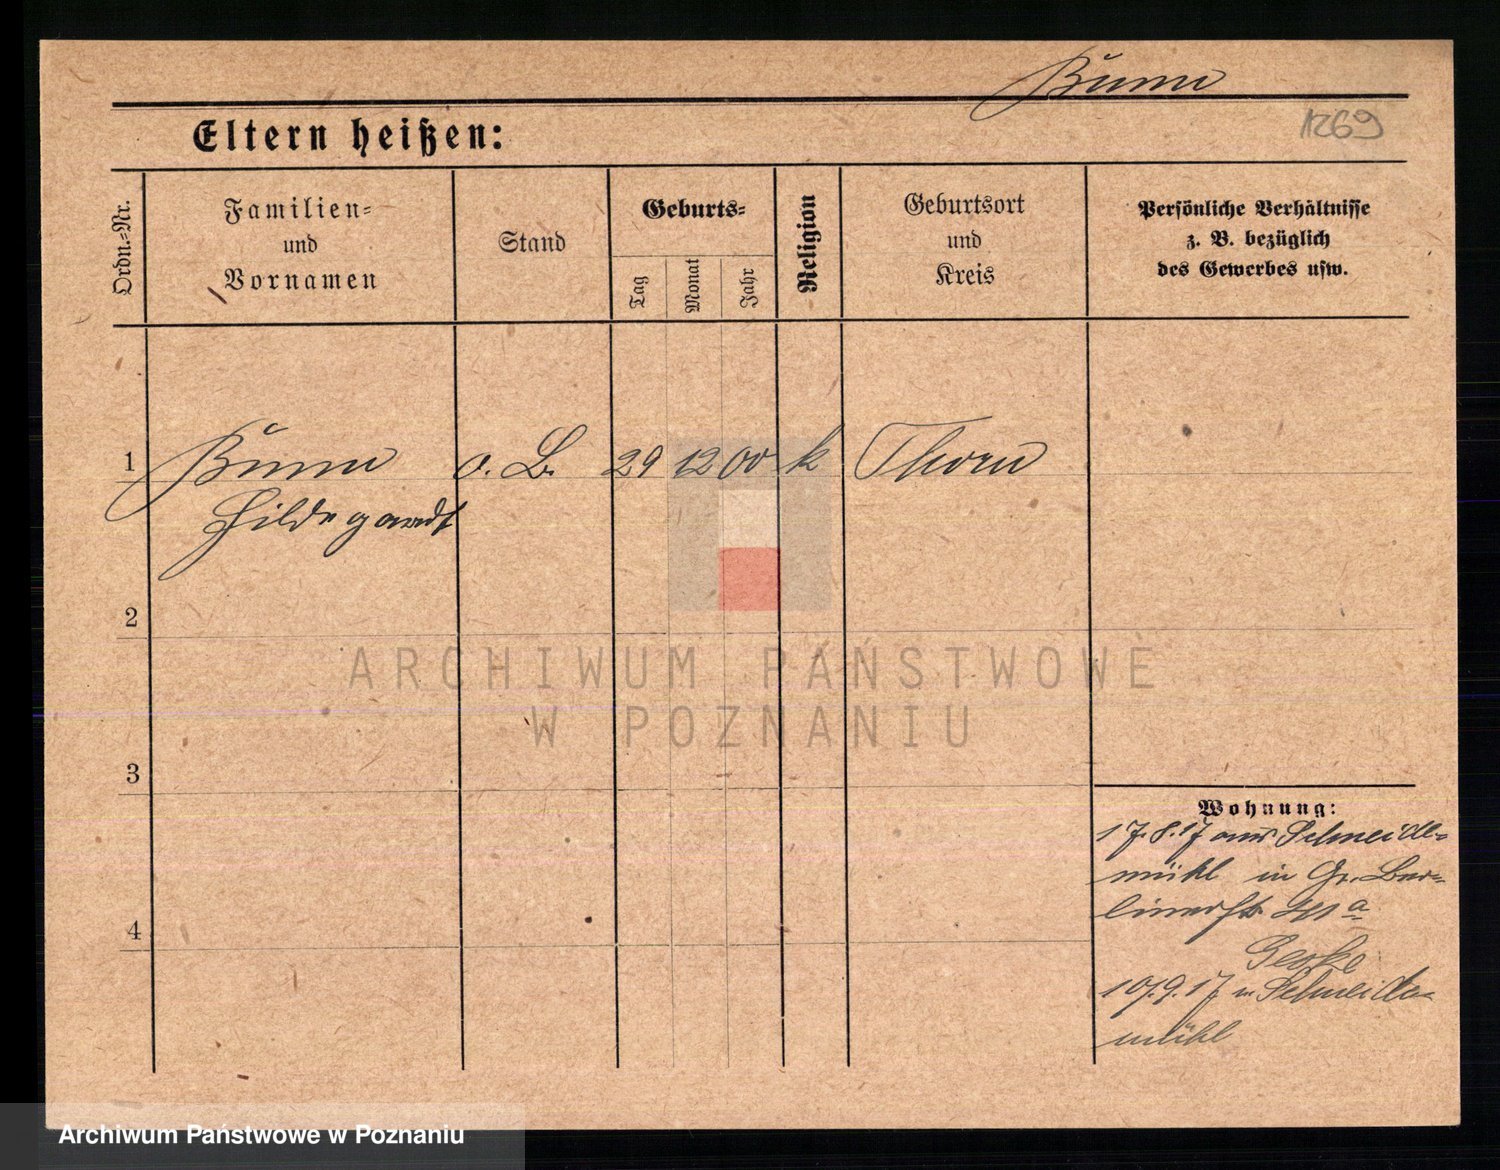 Bumm
1269
Eltern heißen:
Ordn.-Nr.
Familien-
und
Vornamen
Stand
Geburts-
Tag
Monat
Jahr
Religion
Geburtsort
und
Kreis
Persönliche Verhältnisse
z. B. bezüglich
des Gewerbes usw.
1 Bumm o. B. 29 12 00 k Thorn
Hildegardt
2
3
4
Wohnung:
17.8.17 aus Schneide-
mühl in Gr. Ber-
linerstr
Geske
10.9.17 n Schneide-
mühl
ARCHIWUM PAŃSTWOWE
W POZNANIU
Archiwum Państwowe w Poznaniu